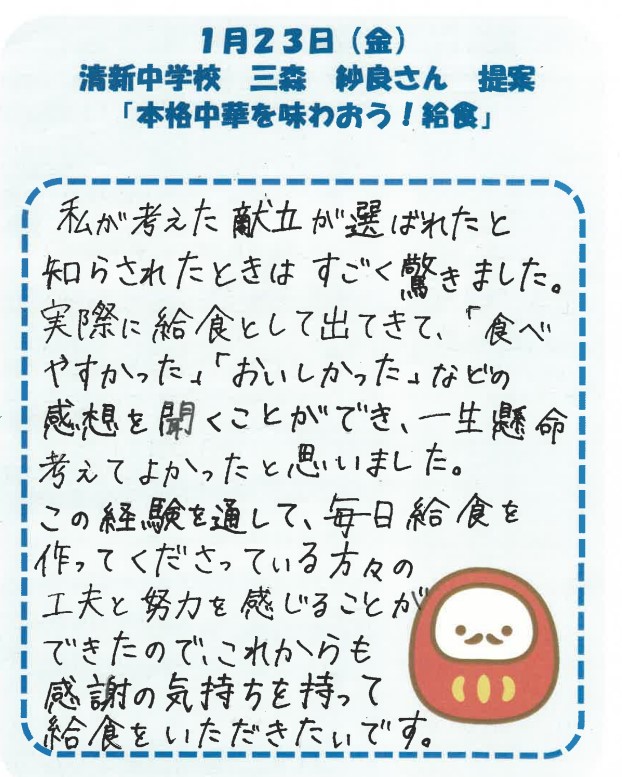 1月23日（金）
清新中学校　三森　紗良さん　提案
「本格中華を味わおう！給食」
私が考えた献立が選ばれたと
知らされたときはすごく驚きました。
実際に給食として出てきて、「食べ
やすかった」「おいしかった」などの
感想を聞くことができ、一生懸命
考えてよかったと思いました。
この経験を通して、毎日給食を
作ってくださっている方々の
工夫と努力を感じることが
できたので、これからも
感謝の気持ちを持って
給食をいただきたいです。